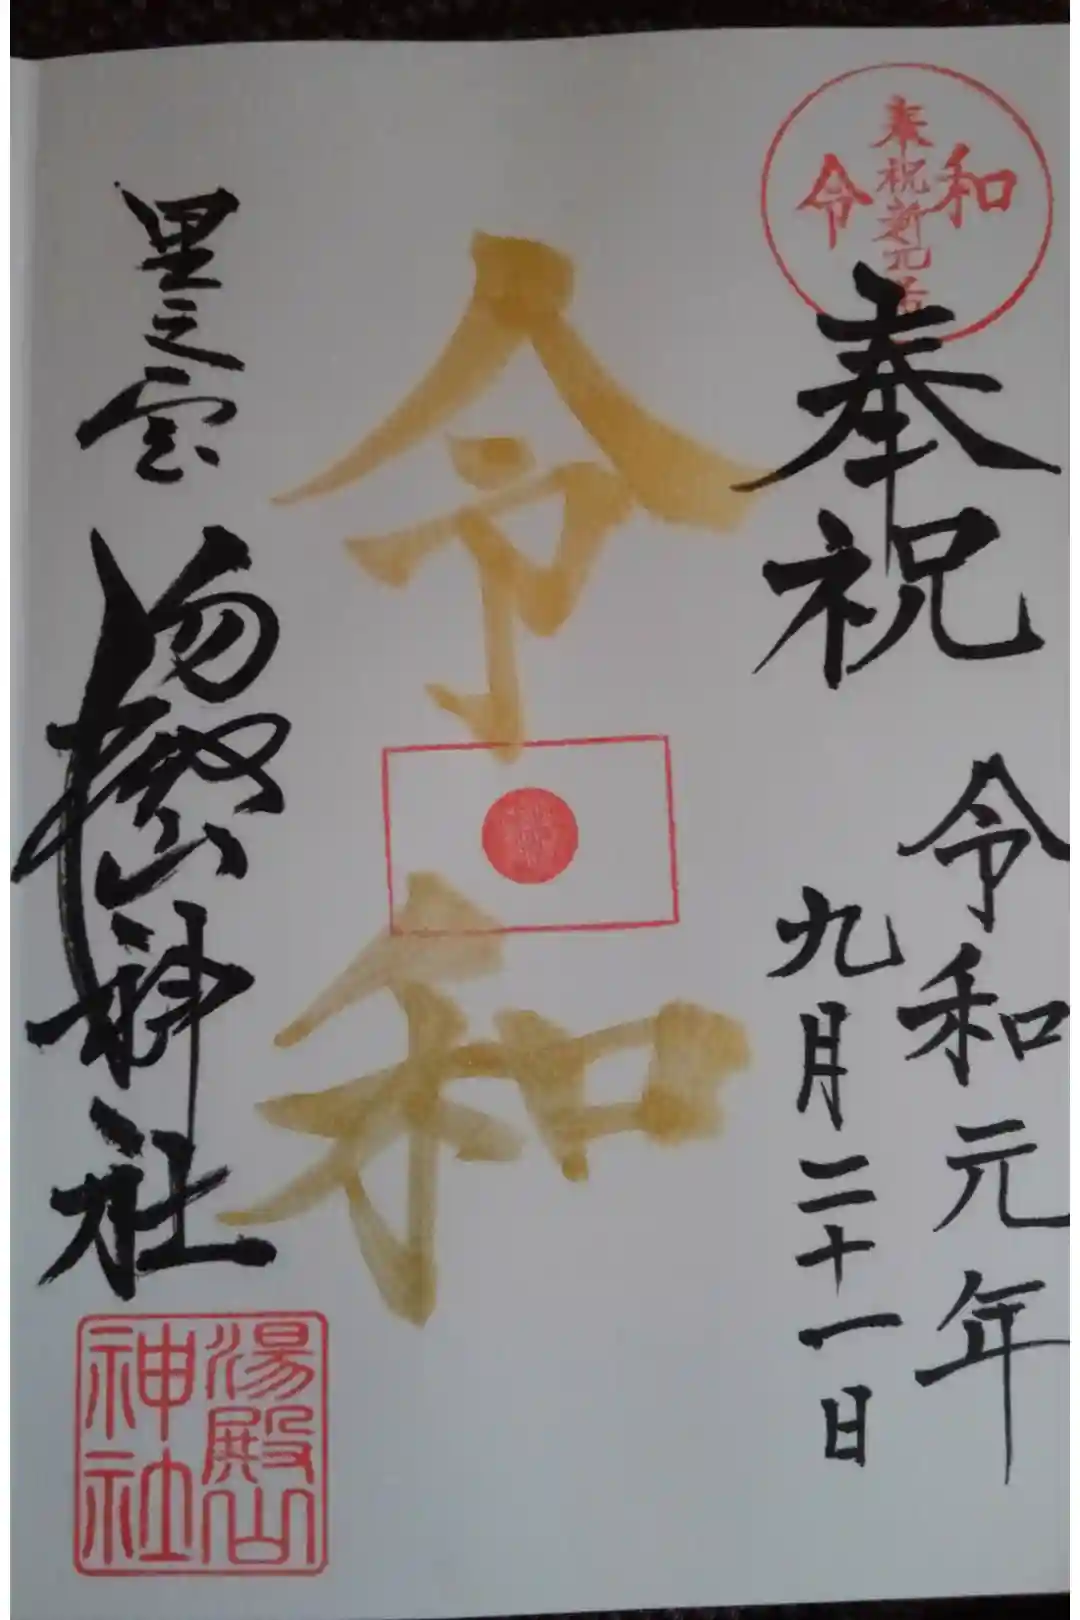 奉祝新元号
令和
奉祝
令和元年
九月二十一日
令和
里之宮
湯殿山神社
湯殿山
神社